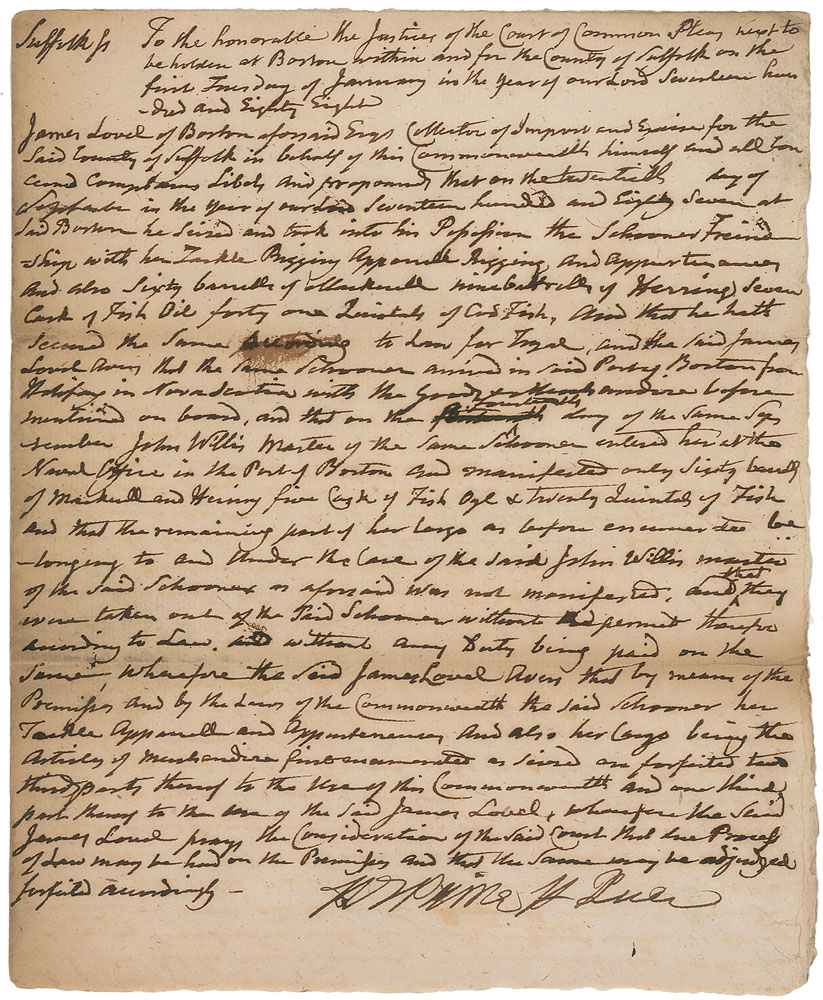 Suffolk ss To the honorable the Justices of the Court of Common Pleas next to
be holden at Boston within and for the County of Suffolk on the
first Tuesday of January in the year of our Lord Seventeen hun
-dred and Eighty Eight
James Lovel of Boston aforsaid Esqr Collector of Impost and Excise for the
Said County of Suffolk in behalf of this Commonwealth himself and all Con
cernd Complains Libels and propounds that on the twentieth day of
September in the year of our Lord Seventeen hundred and Eighty Seven at
Said Boston he Seized and took into his Possession the Schooner Freind
-ship with her Tackle Rigging Apparell Rigging and Appurtenances
And also Sixty barrells of Mackrell nine barrells of Herring Seven
Cask of Fish Oil forty one Quintals of Cod Fish, And that he hath
Secured the Same according to Law for Tryal, and the said James
Lovel avers that the Same Schooner arrived in said Port of Boston from
Halifax in Nova Scotia with the Goods & Merchandize before
mentioned on board, and that on the day of the Same Sep
-tember John Willis Master of the Same Schooner entered her at the
Naval Office in the Port of Boston and manifested only Sixty barrells
of Mackrell and Herring five Cask of Fish Oyl & twenty Quintals of Fish
and that the remaining part of her Cargo as before enumerated be
-longing to and under the Care of the said John Willis master
of the Said Schooner as aforsaid was not manifested, and that they
were taken out of the Said Schooner without permit therefor
according to Law, without any Duty being paid on the
Same, Wherefore the Said James Lovel Avers that by means of the
Premisses and by the Laws of the Commonwealth the said Schooner her
Tackle Apparell and Appurtenances And also her Cargo being the
Articles of Merchandize first enumerated as seized are forfeited two
third parts thereof to the Use of this Commonwealth and one third
part thereof to the Use of the Said James Lovel, wherefore the Said
James Lovel prays the Consideration of the Said Court that due Process
of Law may be had on the Premisses and that the Same may be adjudged
forfeited accordingly -